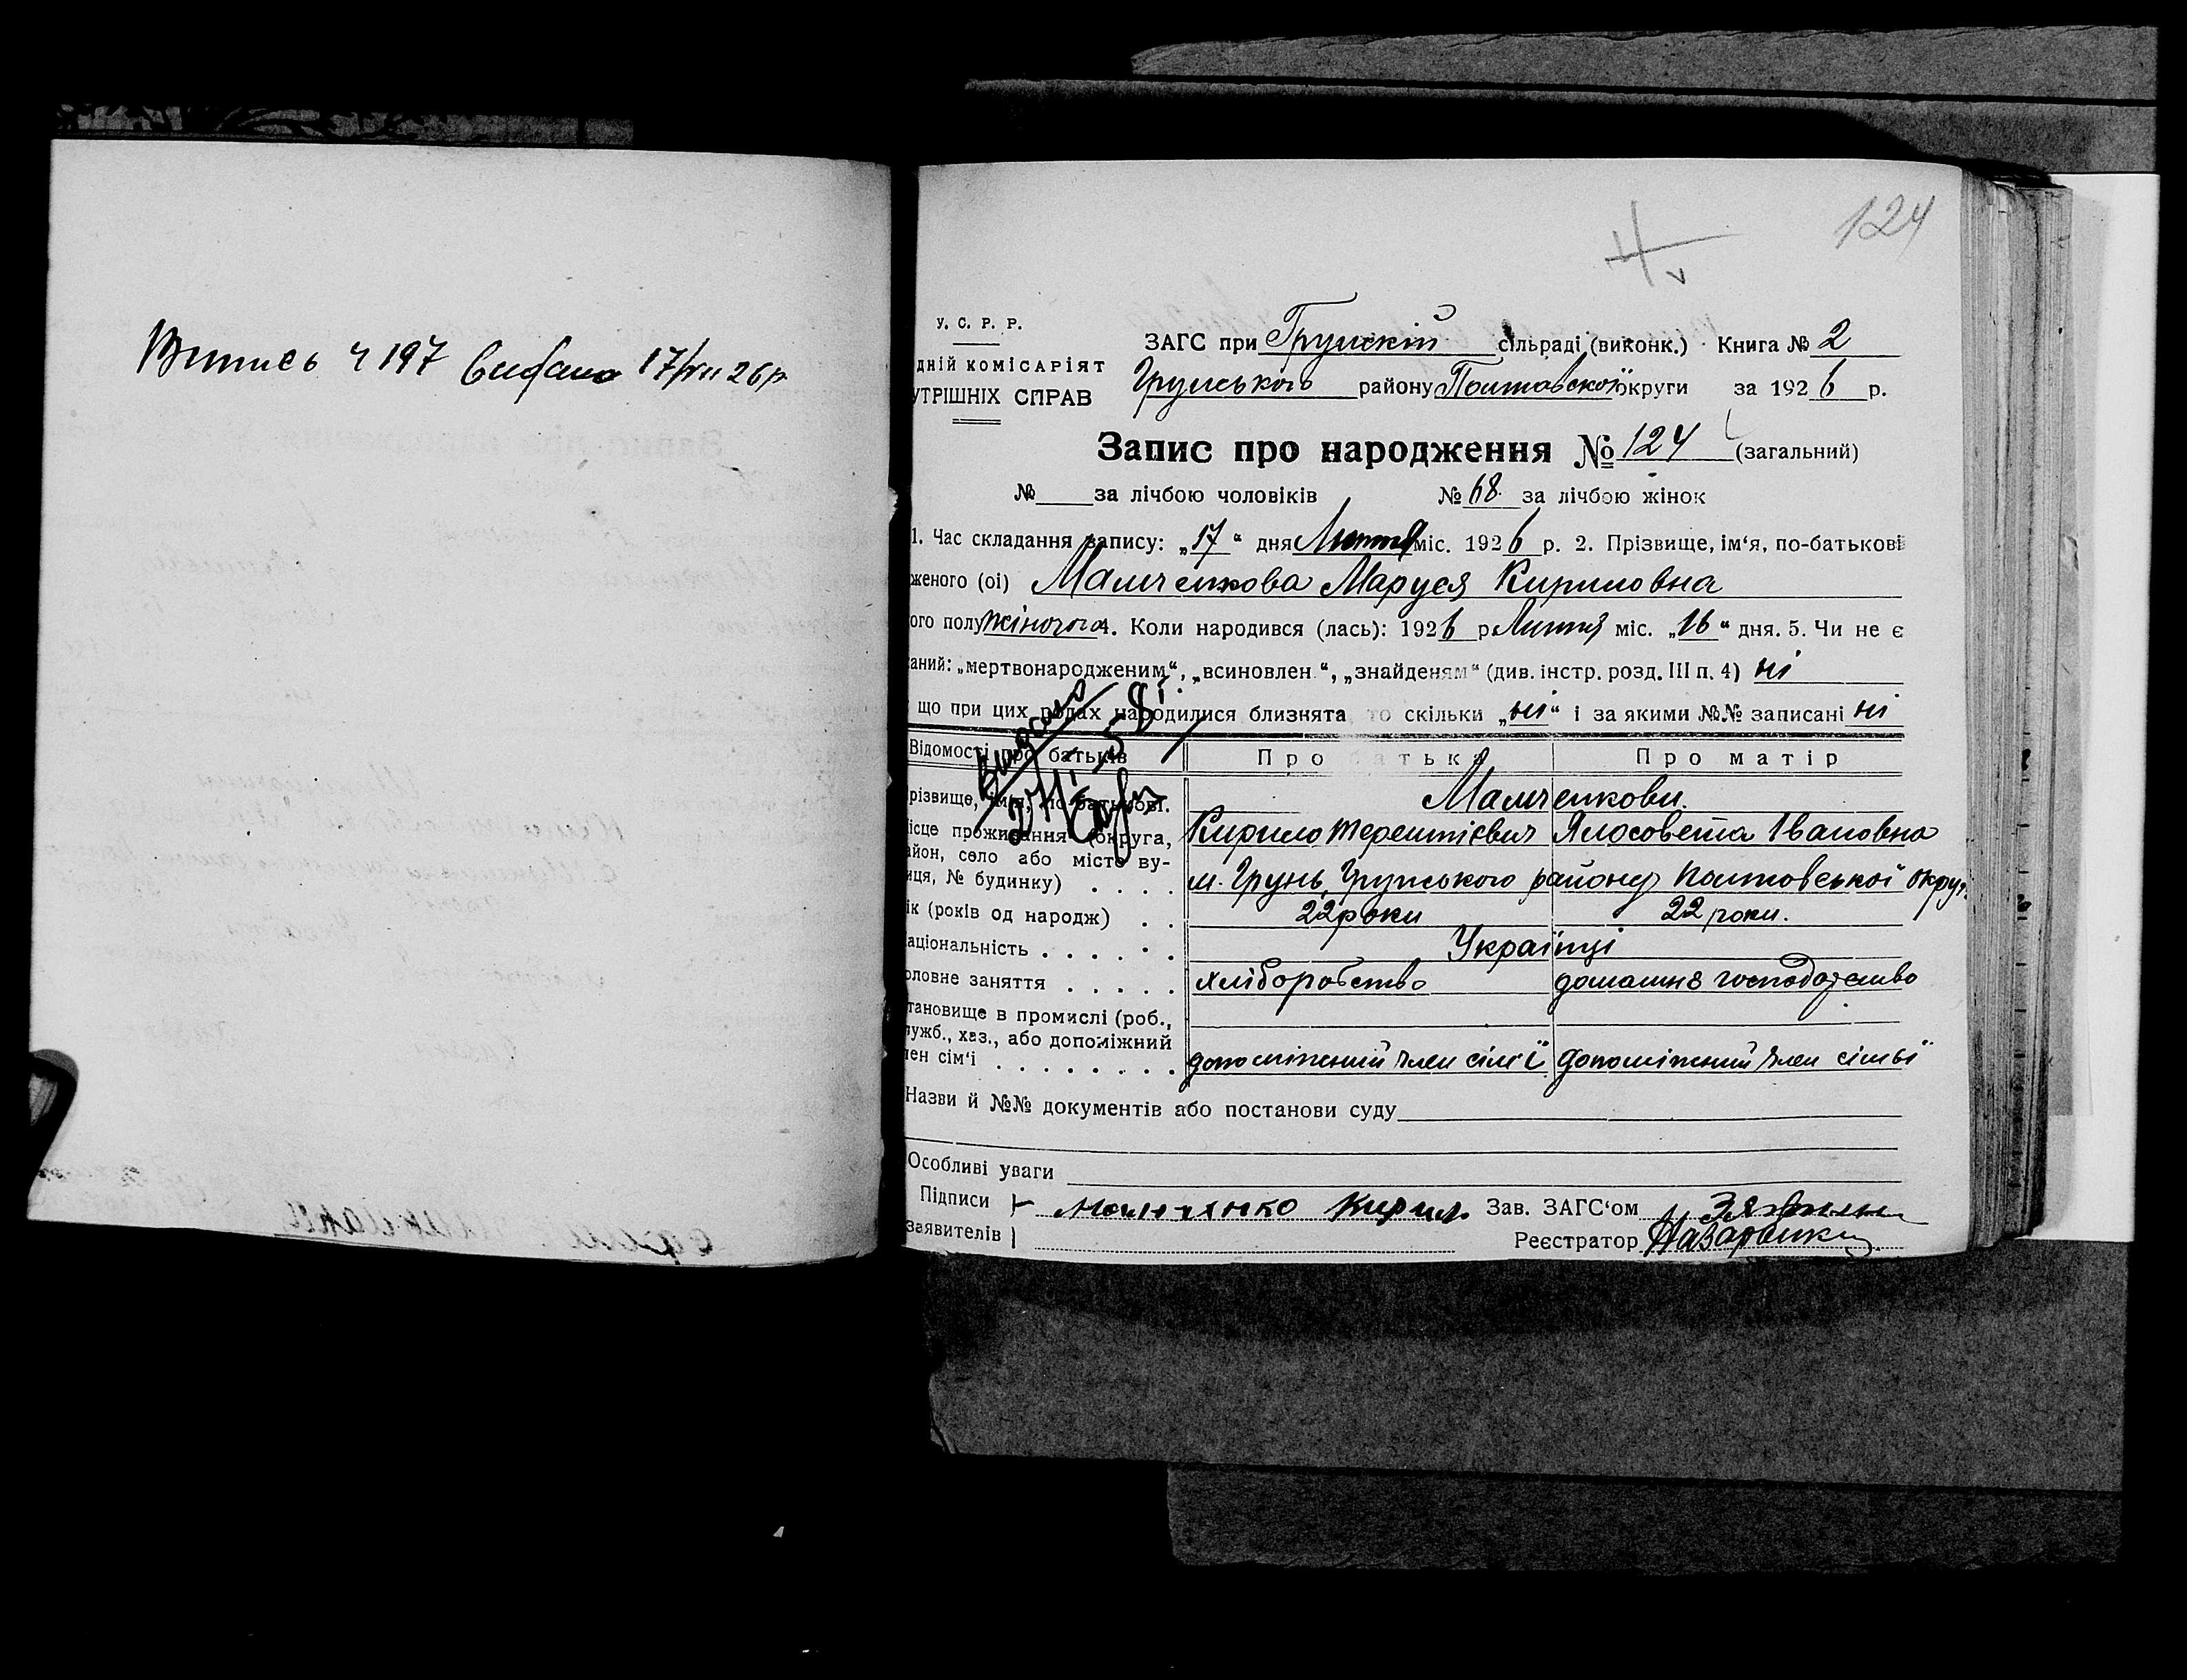 Випись Ч 197 видано 17/VII 26 р
124
У. С. Р. Р.
ЗАГС при Грунській сільраді (виконк.) Книга № 2
дній комісаріят
Грунського району Полтавської округи за 1926 р.
УТРІШНІХ СПРАВ
Запис про народження № 124 (загальний)
№ за лічбою чоловіків № 68 за лічбою жінок
1. Час складання запису: „17“ дня Липня міс. 1926 р. 2. Прізвище, ім‘я, по-батькові
женого (ої) Мамченкова Маруся Кириловна
ого полу жіночого 4. Коли народився (лась): 1926 р Липня міс. „16“ дня. 5. Чи не є
аний: „мертвонародженим“, „всиновлен “, „знайденям“ (див. інстр. розд. III п. 4) ні
що при цих родах народилися близнята то скільки „ні“ і за якими №№ записані ні
Видано
Відомості про батьків Про батька Про матір
різвище, ім‘я, по-батькові. Мамченкови.
Кирило Терентієвич Ялосовета Івановна
ісце проживання (округа,
айон, село або місто ву-
иця, № будинку) . . . . м. Грунь, Грунського району Полтовської округ.
ік (років од народж) . . 22 роки 22 роки.
аціональність . . . . . . Українці
оловне заняття . . . . . хліборобство домашнє господарство
тановище в промислі (роб.,
лужб., хаз., або допоміжний
лен сім‘ї . . . . . . . . допоміжний член сім'ї допоміжний член сімьї
Назви й №№ документів або постанови суду
Особливі уваги
Підписи Мамченко Кирил. Зав. ЗАГС‘ом
заявителів Реєстратор